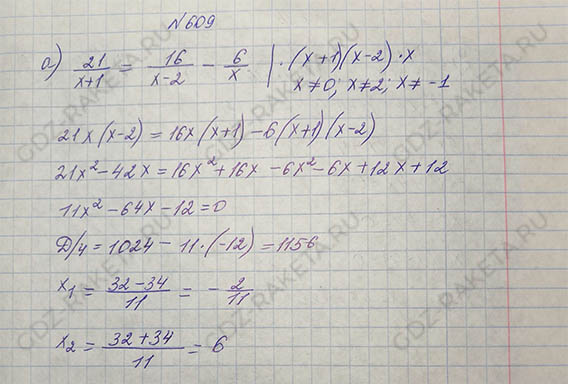 №609
а) 21/(x+1) = 16/(x-2) - 6/x | · (x+1)(x-2)·x
x≠0; x≠2; x≠-1
21x(x-2) = 16x(x+1) - 6(x+1)(x-2)
21x² - 42x = 16x² + 16x - 6x² - 6x + 12x + 12
11x² - 64x - 12 = 0
Д/4 = 1024 - 11·(-12) = 1156
x₁ = (32-34)/11 = - 2/11
x₂ = (32+34)/11 = 6
GDZ-RAKETA.RU
GDZ-RAKETA.RU
GDZ-RAKETA.RU
GDZ-RAKETA.RU